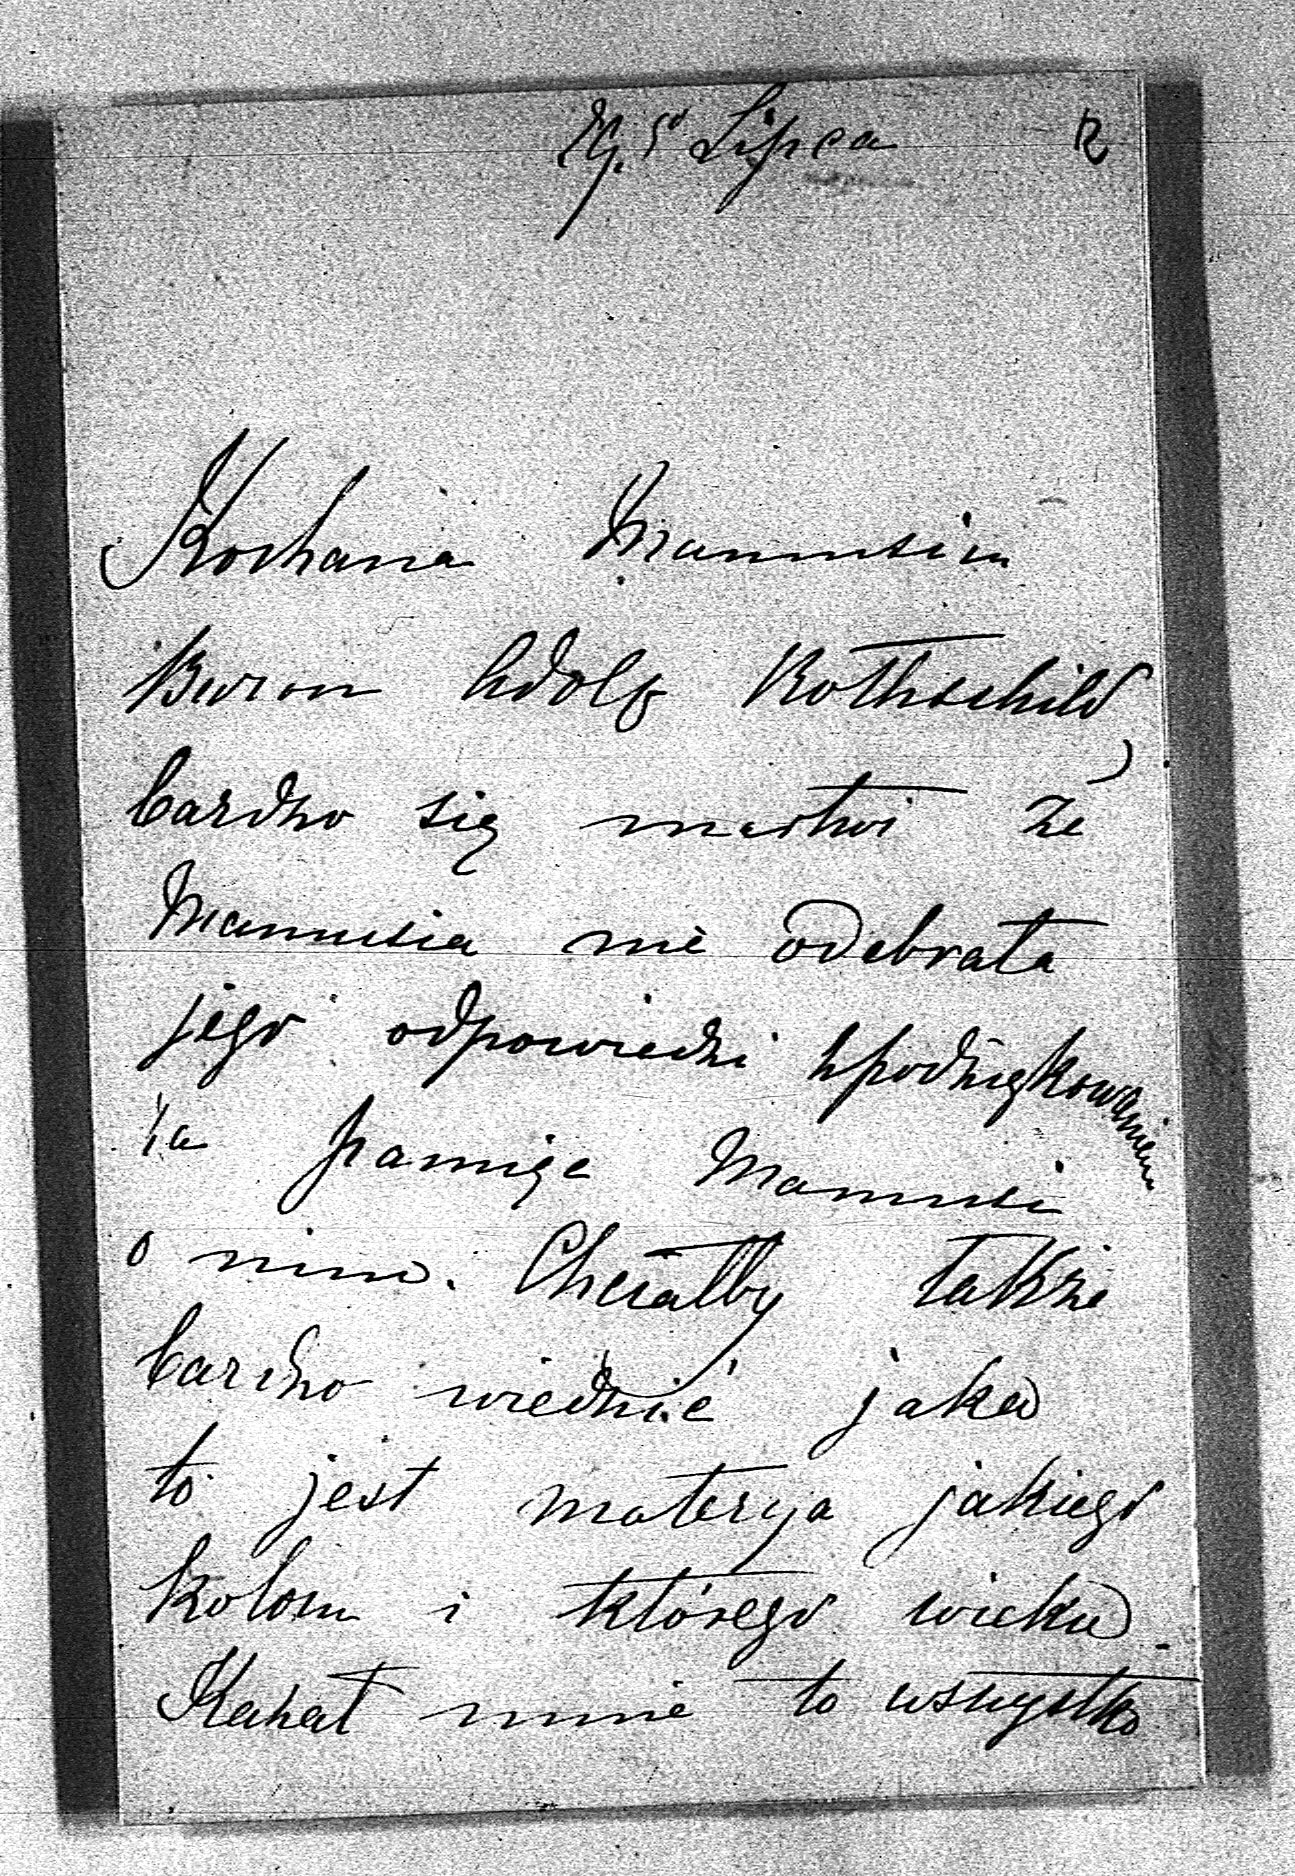 Lipca 12
Kochana Mamusiu
Baron Adolf Rothschild
bardzo się martwi że
Mamusia nie odebrała
jego odpowiedzi z podziękowaniem
za pamięć Mamusi
o nim. Chciałby także
bardzo wiedzieć jaka
to jest materya jakiego
koloru i którego wieku.
Kazał mnie to wszystko